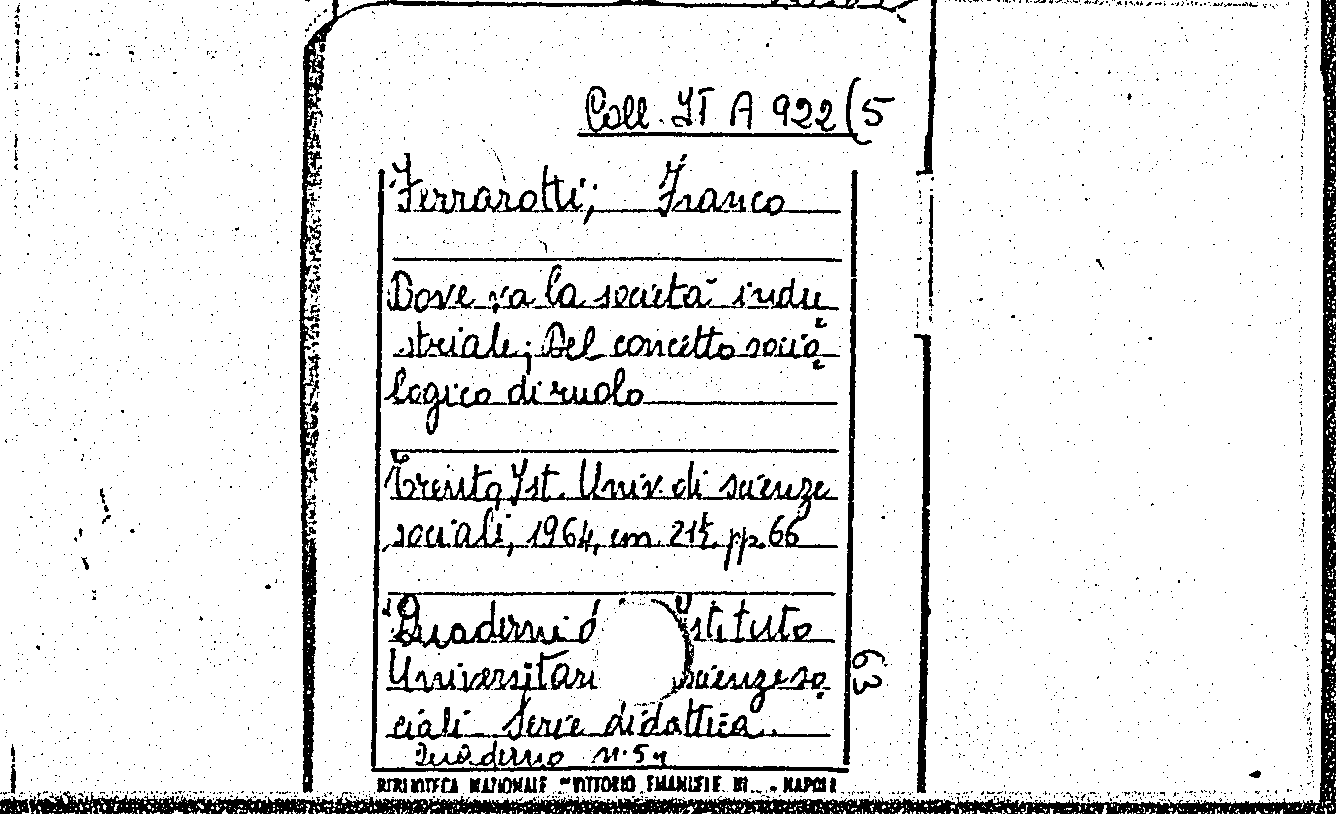 Coll. IT A 922(5
Ferrarotti, Franco
Dove va la società indu
striale; Del concetto socio
logico di ruolo
Trento, Ist. Univ. di scienze
sociali, 1964, cm 21½ pp. 66
Quaderni d stituto
Universitari scienze so
ciali Serie didattica.
Quaderno n. 5
63
BIBLIOTECA NAZIONALE "VITTORIO EMANUELE III" - NAPOLI